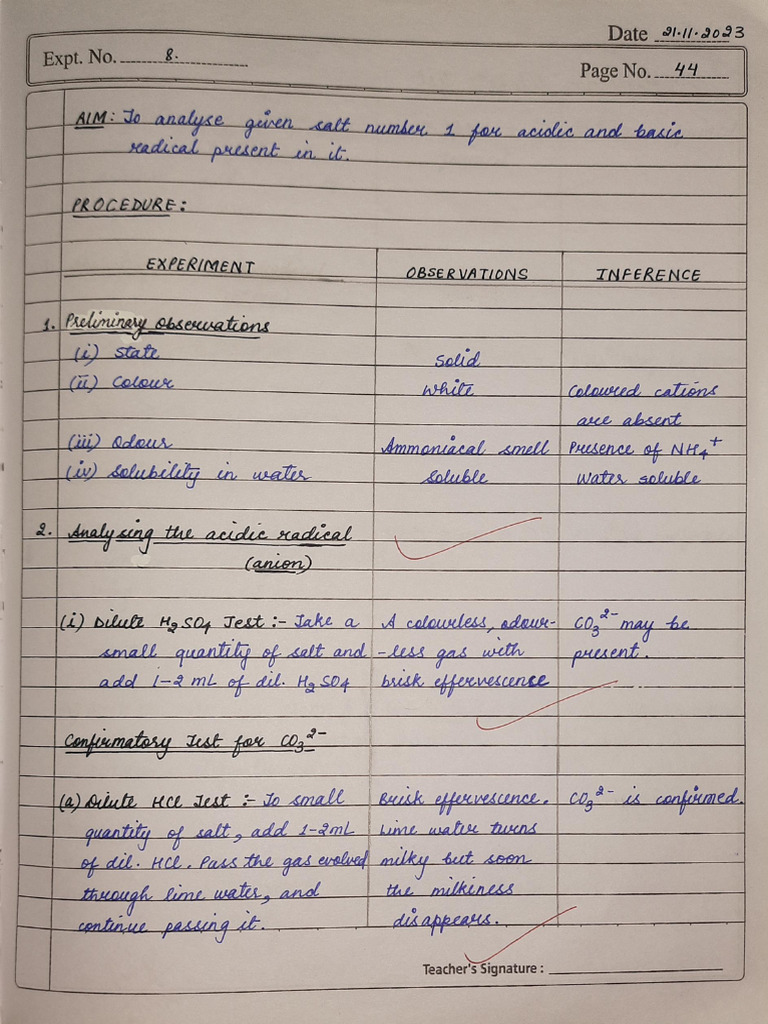 Date 21.11.2023
Expt. No. 8.
Page No. 44
AIM: To analyse given salt number 1 for acidic and basic
radical present in it.
PROCEDURE:
EXPERIMENT OBSERVATIONS INFERENCE
1. Preliminary Observations
(i) State Solid
(ii) Colour White Coloured cations
are absent
(iii) Odour Ammoniacal smell Presence of NH₄⁺
(iv) Solubility in water Soluble Water soluble
2. Analysing the acidic radical
(anion)
(i) Dilute H₂SO₄ Test :- Take a A colourless, odour- CO₃²⁻ may be
small quantity of salt and -less gas with present.
add 1-2 mL of dil. H₂SO₄ brisk effervescence
Confirmatory Test for CO₃²⁻
(a) Dilute HCl Test :- To small Brisk effervescence. CO₃²⁻ is confirmed.
quantity of salt, add 1-2mL Lime water turns
of dil. HCl. Pass the gas evolved milky but soon
through lime water, and the milkiness
continue passing it. disappears.
Teacher's Signature :